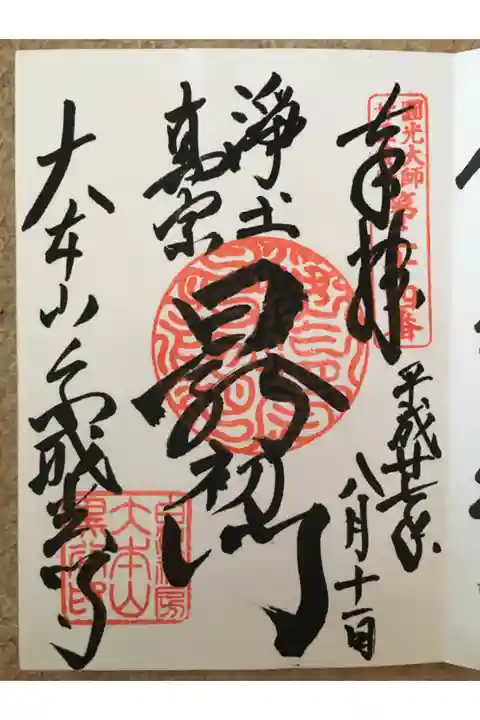 圓光大師第二十四番
奉拝
平成廿年
八月十一日
浄土
真宗
最初門
大本山金戒光明寺
大本山